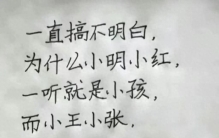 一直搞不明白，
为什么小明小红，
一听就是小孩，
而小王小张，